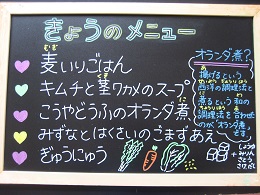 きょうのメニュー
麦いりごはん
むぎ
キムチと茎ワカメのスープ
くき
こうやどうふのオランダ煮
に
みずなとはくさいのごまずあえ
ぎゅうにゅう
オランダ煮?
に
揚げるという
西洋の調理法と
煮るという和の
調理法を合わせた
のが オランダ煮
です。
しょうゆ
みりん
さとう
さけ